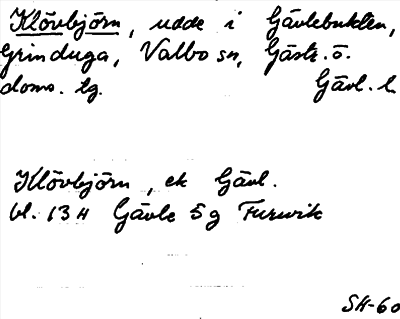 Klövbjörn, udde i Gävlebukten,
Grinduga, Valbo sn, Gästr. ö.
doms. tg. Gävl. l.
Klövbjörn, ek Gävl.
bl. 13H Gävle 5g Furuvik
SH-60